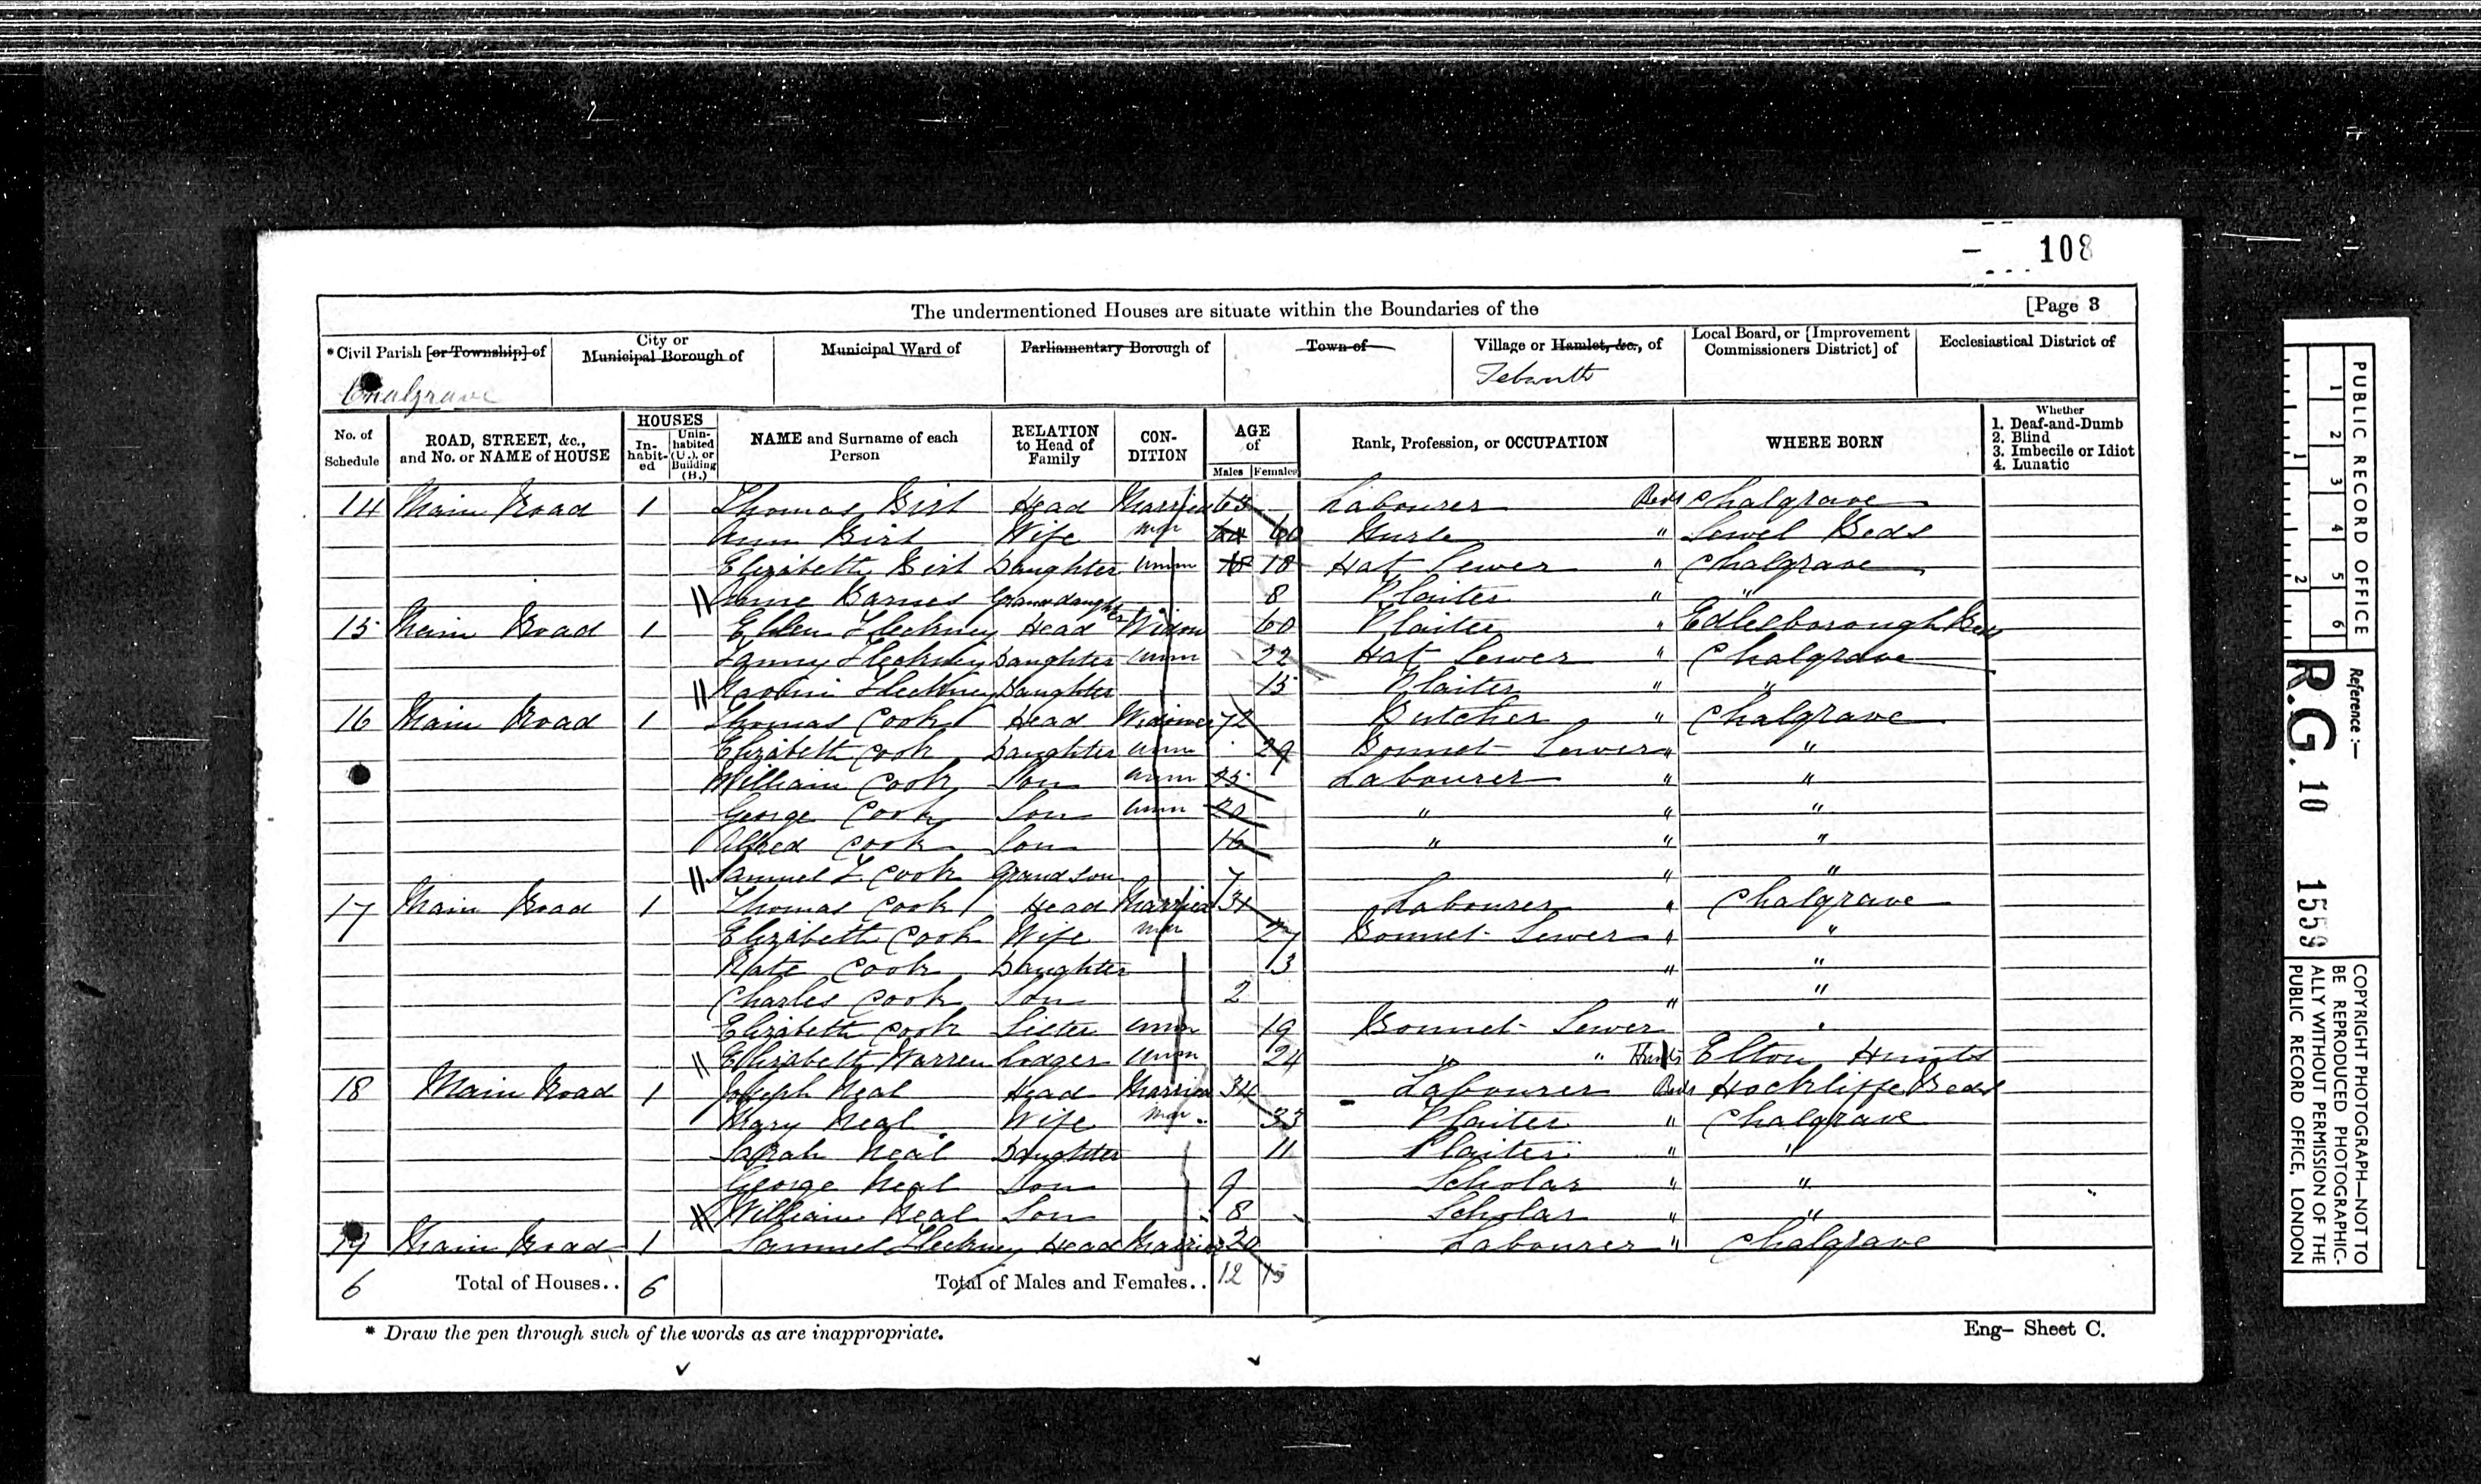 108
The undermentioned Houses are situate within the Boundaries of the [Page 3
*Civil Parish [or Township] of
City or Municipal Borough of
Municipal Ward of
Parliamentary Borough of
Town of
Village or Hamlet, &c., of
Local Board, or [Improvement Commissioners District] of
Ecclesiastical District of
Chalgrave Tebworth
No. of Schedule
ROAD, STREET, &c., and No. or NAME of HOUSE
HOUSES
Inhabited
Uninhabited (U.), or Building (B.)
NAME and Surname of each Person
RELATION to Head of Family
CONDITION
AGE of
Males Females
Rank, Profession, or OCCUPATION
WHERE BORN
Whether
1. Deaf-and-Dumb
2. Blind
3. Imbecile or Idiot
4. Lunatic
14 Main Road 1 Thomas Girl Head Married 63 Labourer Beds Chalgrave
Ann Girl Wife Mar 60 Nurse " Sewel Beds
Elizabeth Girl Daughter Unm 18 18 Hat Sewer " Chalgrave
Annie Barnes Granddaughter 8 Plaiter " "
15 Main Road 1 Ellen Fleckney Head Widow 60 Plaiter " Edlesborough
Fanny Fleckney Daughter Unm 22 Hat Sewer " Chalgrave
Fleckney Daughter 15 Plaiter " "
16 Main Road 1 Thomas Cook Head Widower 72 Butcher " Chalgrave
Elizabeth Cook Daughter Unm 29 Bonnet Sewer " "
William Cook Son Unm 25 Labourer " "
George Cook Son Unm 20 " " "
Alfred Cook Son 16 " " "
Samuel F Cook Grandson 7 " "
17 Main Road 1 Thomas Cook Head Married 31 Labourer " Chalgrave
Elizabeth Cook Wife Mar 27 Bonnet Sewer " "
Kate Cook Daughter 3 " "
Charles Cook Son 2 " "
Elizabeth Cook Sister Unm 19 Bonnet Sewer "
Elizabeth Warren Lodger Unm 24 " " Hunts Elton Hunts
18 Main Road 1 Joseph Neal Head Married 34 Labourer Beds Hockliffe Beds
Mary Neal Wife Mar 33 Plaiter " Chalgrave
Sarah Neal Daughter 11 Plaiter " "
George Neal Son 9 Scholar " "
William Neal Son 8 Scholar " "
19 Main Road 1 Samuel Fleckney Head Married 20 Labourer " Chalgrave
6 Total of Houses.. 6 Total of Males and Females.. 12 15
* Draw the pen through such of the words as are inappropriate.
Eng- Sheet C.
PUBLIC RECORD OFFICE
1 2 3 4 5 6
1 2
Reference:-
R.G. 10 1559
COPYRIGHT PHOTOGRAPH—NOT TO BE REPRODUCED PHOTOGRAPHICALLY WITHOUT PERMISSION OF THE PUBLIC RECORD OFFICE, LONDON